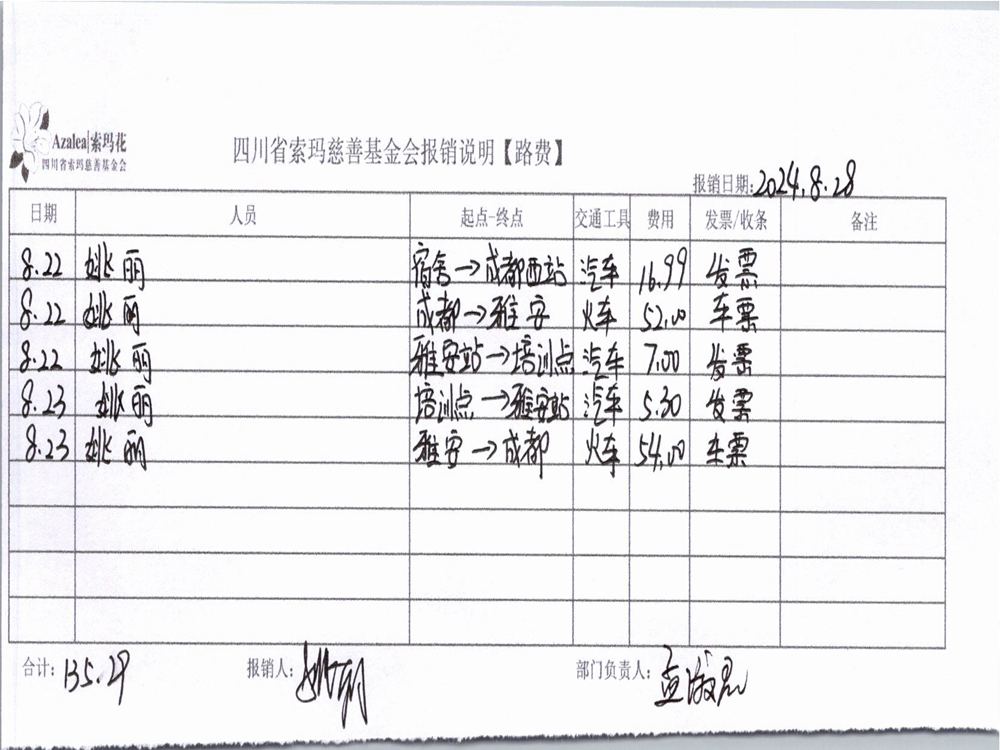 Azalea|索玛花
四川省索玛慈善基金会
四川省索玛慈善基金会报销说明【路费】
报销日期:2024.8.28
日期 人员 起点-终点 交通工具 费用 发票/收条 备注
8.22 姚丽 宿舍→成都西站 汽车 16.99 发票
8.22 姚丽 成都→雅安 火车 52.00 车票
8.22 姚丽 雅安站→培训点 汽车 7.00 发票
8.23 姚丽 培训点→雅安站 汽车 5.30 发票
8.23 姚丽 雅安→成都 火车 54.00 车票
合计: 135.29 报销人: 姚丽 部门负责人: